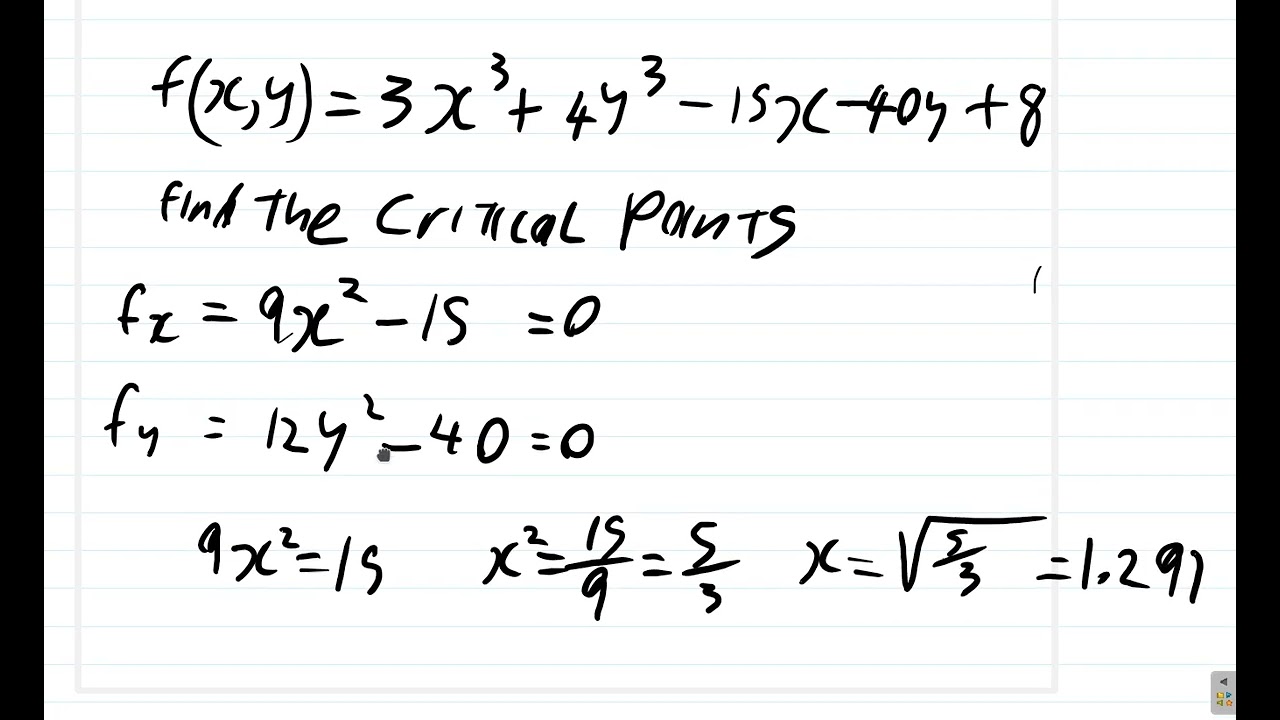 f(x,y) = 3x³ + 4y³ - 15x - 40y + 8
find the critical points
fx = 9x² - 15 = 0
fy = 12y² - 40 = 0
9x² = 15 x² = 15/9 = 5/3 x = √(5/3) = 1.291